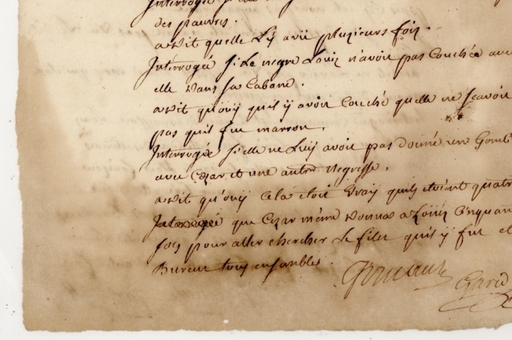 Interrogé si
des pauvres.
a dit quelle l'y avii plusieurs fois.
Interrogée si Le negre Louis n'avoir pas Couchée avec
elle dans sa Cabane.
a dit qu'ouy quil y avoir Couché quelle ne scavoir
pas quil fut marron.
Interrogée si elle ne Luy avoir pas donné un Gombo
avec Cezar et une autre negresse.
a dit qu'ouy Cela étoit vray quils étoient quatre
Interrogée que Cezar même donna a Louis Cinquan
sols pour aller chercher Le filet quil y fut et
Burent tous ensembles.